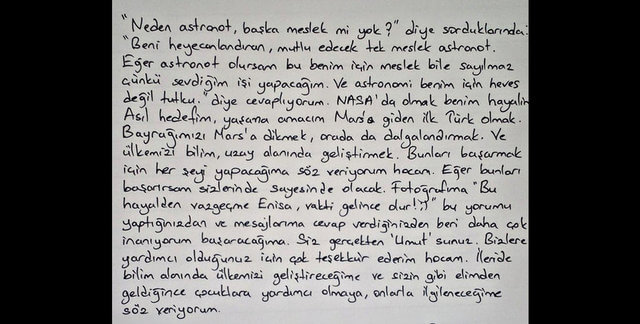 "Neden astronot, başka meslek mi yok?" diye sorduklarında:
"Beni heyecanlandıran, mutlu edecek tek meslek astronot.
Eğer astronot olursam bu benim için meslek bile sayılmaz
çünkü sevdiğim işi yapacağım. Ve astronomi benim için heves
değil tutku." diye cevaplıyorum. NASA'da olmak benim hayalim
Asıl hedefim, yaşama amacım Mars'a giden ilk Türk olmak.
Bayrağımızı Mars'a dikmek, orada da dalgalandırmak. Ve
ülkemizi bilim, uzay alanında geliştirmek. Bunları başarmak
için her şeyi yapacağıma söz veriyorum hocam. Eğer bunları
başarırsam sizlerinde sayesinde olacak. Fotoğrafıma "Bu
hayalden vazgeçme Enisa, vakti gelince olur! :)" bu yorumu
yaptığınızdan ve mesajlarıma cevap verdiğinizden beri daha çok
inanıyorum başaracağıma. Siz gerçekten 'Umut'sunuz. Bizlere
yardımcı olduğunuz için çok teşekkür ederim hocam. İleride
bilim alanında ülkemizi geliştireceğime ve sizin gibi elimden
geldiğince çocuklara yardımcı olmaya, onlarla ilgileneceğime
söz veriyorum.